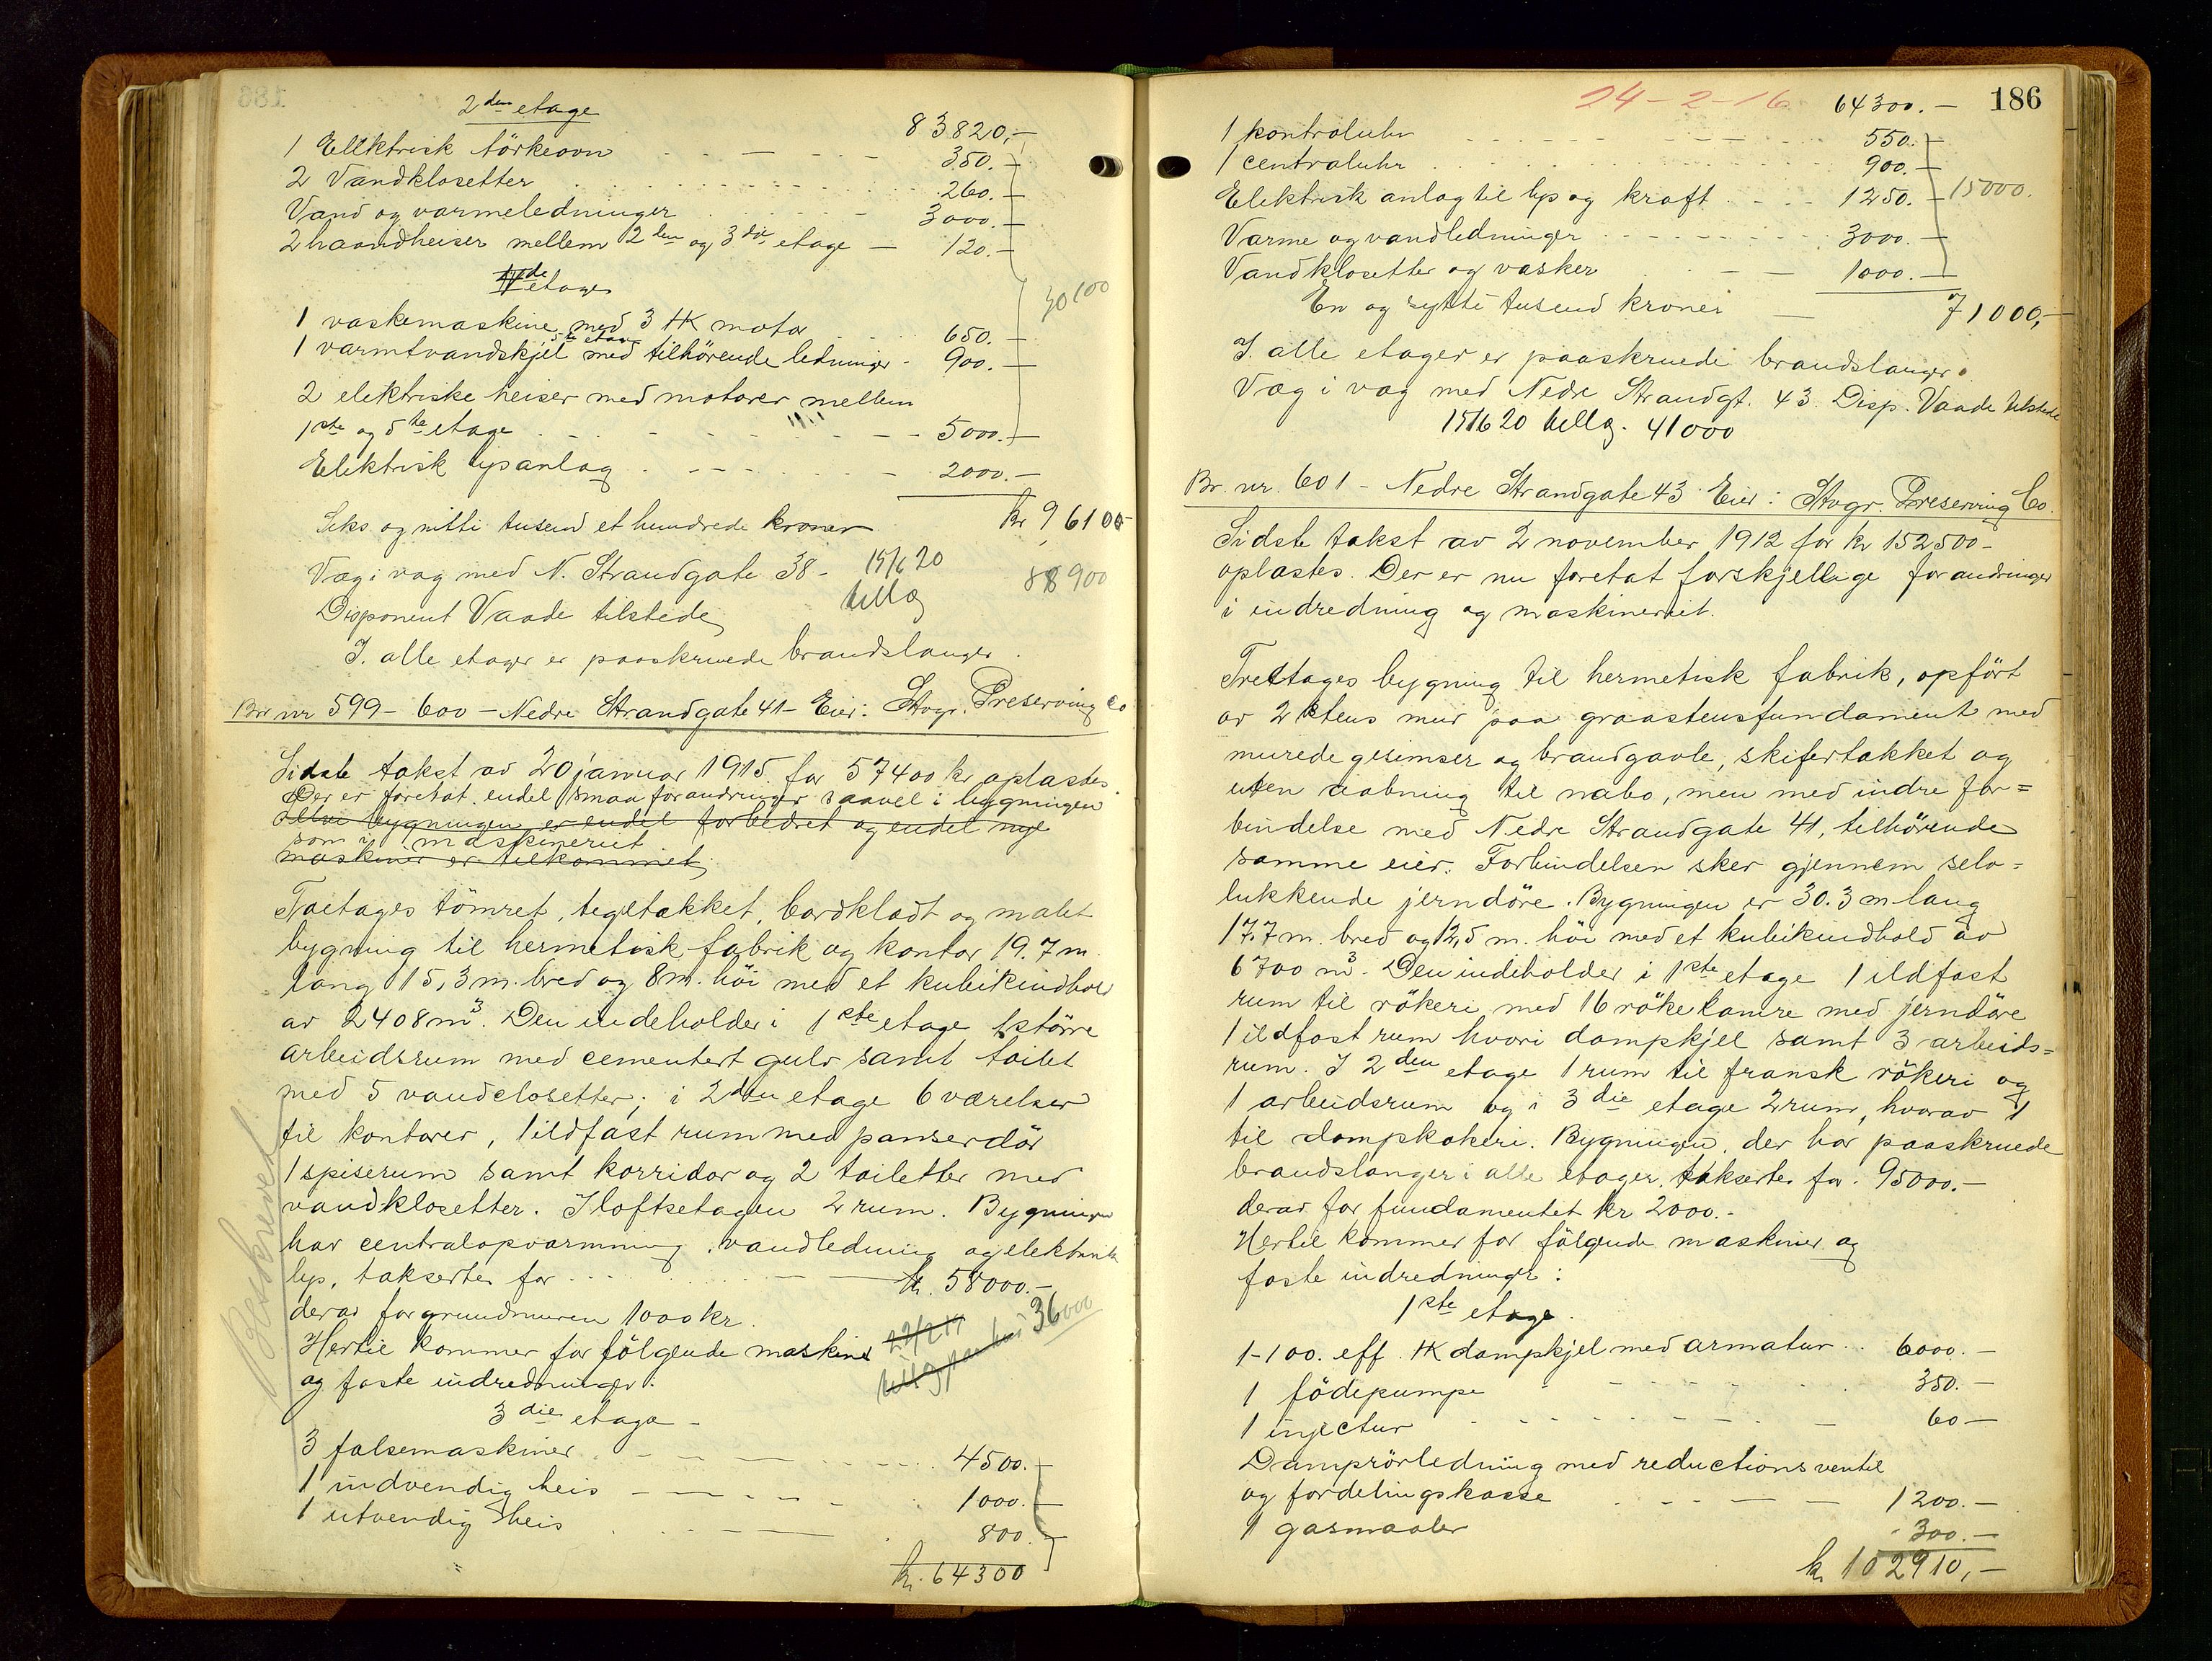 2den etage
83820,-
1 Ellektrisk törkeovn 350.-
2 Vandklosetter 260.-
Vand og varmeledninger 3000.-
2 haandheiser mellem 2den og 3die etage - 120.-
IVde etage
30100
1 vaskemaskine med 3 HK motor 650.-
5te etage
1 varmtvandskjel med tilhörende ledninger - 900.-
2 elektriske heiser med motorer mellem
1ste og 5te etage 5000.-
Elektrisk lysanlæg 2000.-
Seks og nitti tusend et hundrede kroner kr 96100-
Væg i væg med N. Strandgate 38- 15/6 20
88900
Disponent Vaade tilstede tillæg
I alle etager er paaskruede brandslanger.
Br nr 599 - 600 - Nedre Strandgate 41 - Eier: Stvgr. Preserving Co
Sidste takst av 20 januar 1915 for 57400 kr oplastes.
Der er foretat endel smaa forandringer saavel i bygningen
bygningen er endel forbedret og endel nye
som i maskineriet
maskiner er tilkommet
Toetages tömret, tegltækket, bordklædt og malet
bygning til hermetisk fabrik og kontor 19.7 m
lang 15,3 m. bred og 8 m. höi med et kubikindhold
av 2408 m3. Den indeholder i 1ste etage 1 större
arbeidsrum med cementert gulv samt toilet
med 5 vandclosetter; i 2den etage 6 værelser
til kontorer, 1 ildfast rum med panserdör
1 spiserum samt korridor og 2 toiletter med
vandklosetter. I loftsetagen 2 rum. Bygningen
har centralopvarmning, vandledning og elektrisk
lys, takseres for kr. 58000.-
derav for grundmuren 1000 kr.
Hertil kommer for fölgende maskiner 22/2 17
og faste indredninger: 36000
Beskrevet
3die etage -
3 falsemaskiner 4500.-
1 indvendig heis 1000.-
1 utvendig heis 800.-
kr. 64300
24-2-16 64300.- 186
1 kontroluhr 550.-
1 centraluhr 900.-
Elektrisk anlæg til lys og kraft 1250.- 15000.
Varme og vandledninger 3000.-
Vandklosetter og vasker 1000.-
En og sytti tusend kroner 71000,-
I alle etager er paaskruede brandslanger.
Væg i væg med Nedre Strandgt. 43. Disp. Vaade tilstede
15/6 20 tillæg. 41000
Br. nr. 601 - Nedre Strandgate 43 Eier: Stvgr. Preserving Co.
Sidste takst av 2 november 1912 for kr 152500-
oplastes. Der er nu foretat forskjellige forandringer
i indredning og maskineriet.
Treetages bygning til hermetisk fabrik, opfört
av 2 stens mur paa graastensfundament med
murede gesimser og brandgavle, skifertækket og
uten aabning til nabo, men med indre for=
bindelse med Nedre Strandgate 41, tilhörende
samme eier. Forbindelsen sker gjennem selv=
lukkende jerndöre. Bygningen er 30.3 m lang
17,7 m. bred og 12,5 m. höi med et kubikindhold av
6700 m3. Den indeholder i 1ste etage 1 ildfast
rum til rökeri med 16 rökekamre med jerndöre
1 ildfast rum hvori dampkjel samt 3 arbeids=
rum. I 2den etage 1 rum til fransk rökeri og
1 arbeidsrum og i 3die etage 2 rum, hvorav 1
til dampkokeri. Bygningen, der har paaskruede
brandslanger i alle etager, takseres for: 95000.-
derav for fundamentet kr 2000.-
Hertil kommer for fölgende maskiner og
faste indredninger:
1ste etage.
1-100. eff. HK dampkjel med armatur 6000.-
1 födepumpe 350.-
1 injectur 60-
Damprörledning med reductionsventil
og fordelingskasse 1200.-
1 gasmaaler 300.-
kr 102910,-